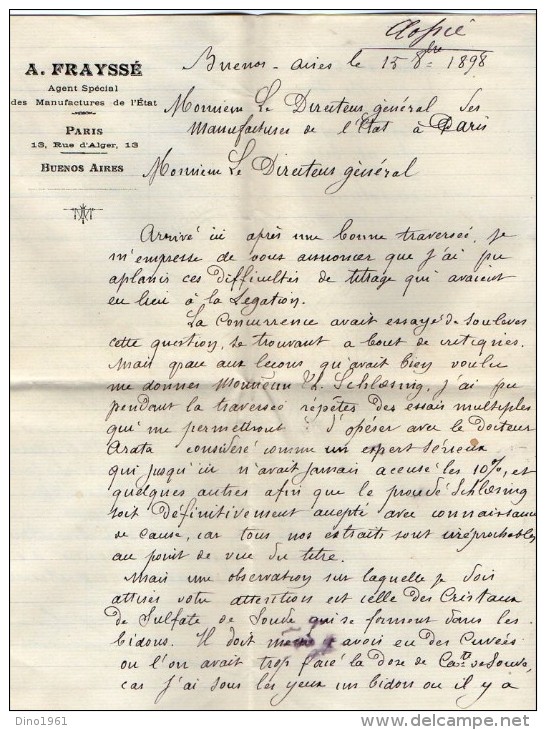 Classé
A. FRAYSSÉ
Agent Spécial
des Manufactures de l'État
PARIS
13, Rue d'Alger, 13
BUENOS AIRES
Buenos-aires le 15 8bre 1898
Monsieur Le Directeur général des
Manufactures de l'Etat à Paris
Monsieur Le Directeur général
Arrivé ici après une bonne traversée, je
m'empresse de vous annoncer que j'ai pu
aplanir ces difficultés de titrage qui avaient
eu lieu à la Légation.
La Concurrence avait essayé de soulever
cette question, se trouvant à bout de critiques.
Mais grace aux leçons qu'avait bien voulu
me donner Monsieur Th. Schlœsing, j'ai pu
pendant la traversée répéter des essais multiples
qui me permettront d'opérer avec le docteur
Arata considéré comme un expert sérieux
qui jusqu'ici n'avait jamais accusé les 10%, et
quelques autres afin que le procédé Schlœsing
soit définitivement accepté avec connaissance
de cause, car tous nos extraits sont irréprochables
au point de vue du titre.
Mais une observation sur laquelle je dois
attirer votre attention est celle des Cristaux
de Sulfate de Soude qui se forment dans les
bidons. Il doit y avoir eu des Cuvées
ou l'on avait trop forcé la dose de Cate de Soude,
car j'ai sous les yeux un bidon ou il y a
Dino1961
delcampe.net